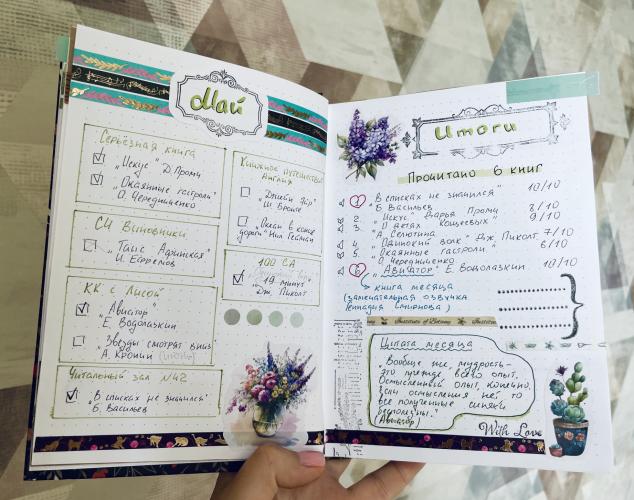 Май
Серьёзная книга
„Искус" Д. Промч
„Окаянные гастроли"
О. Чередниченко
СЧ Виновники
„Таис Афинская"
И. Ефремов
КК с Лисой
„Авиатор"
Е. Водолазкин
„Звезды смотрят вниз"
А. Кронин
Читальный зал №42
„В списках не значился"
Б. Васильев
Книжное путешествие
Англия
„Джейн Эйр"
Ш. Бронте
„Океан в конце
дороги" Нил Гейман
100 СА
„19 минут"
Дж. Пиколт
Итоги
Прочитано 6 книг
1. „В списках не значился" 10/10
Б. Васильев
2. „Искус" Дарья Промч 8/10
3. „О детях кощеевых" 9/10
А. Селютина
4. „Одинокий волк" Дж. Пиколт 7/10
5. „Окаянные гастроли" 6/10
О. Чередниченко
6. „Авиатор" Е. Водолазкин 10/10
книга месяца
(замечательная озвучка
Геннадия Смирнова)
Institute of Botany
Цитата месяца
Вообще же, мудрость –
это прежде всего опыт.
Осмысленный опыт, конечно.
Если осмысления нет, то
все полученные синяки
бесполезны.
(Авиатор)
With Love